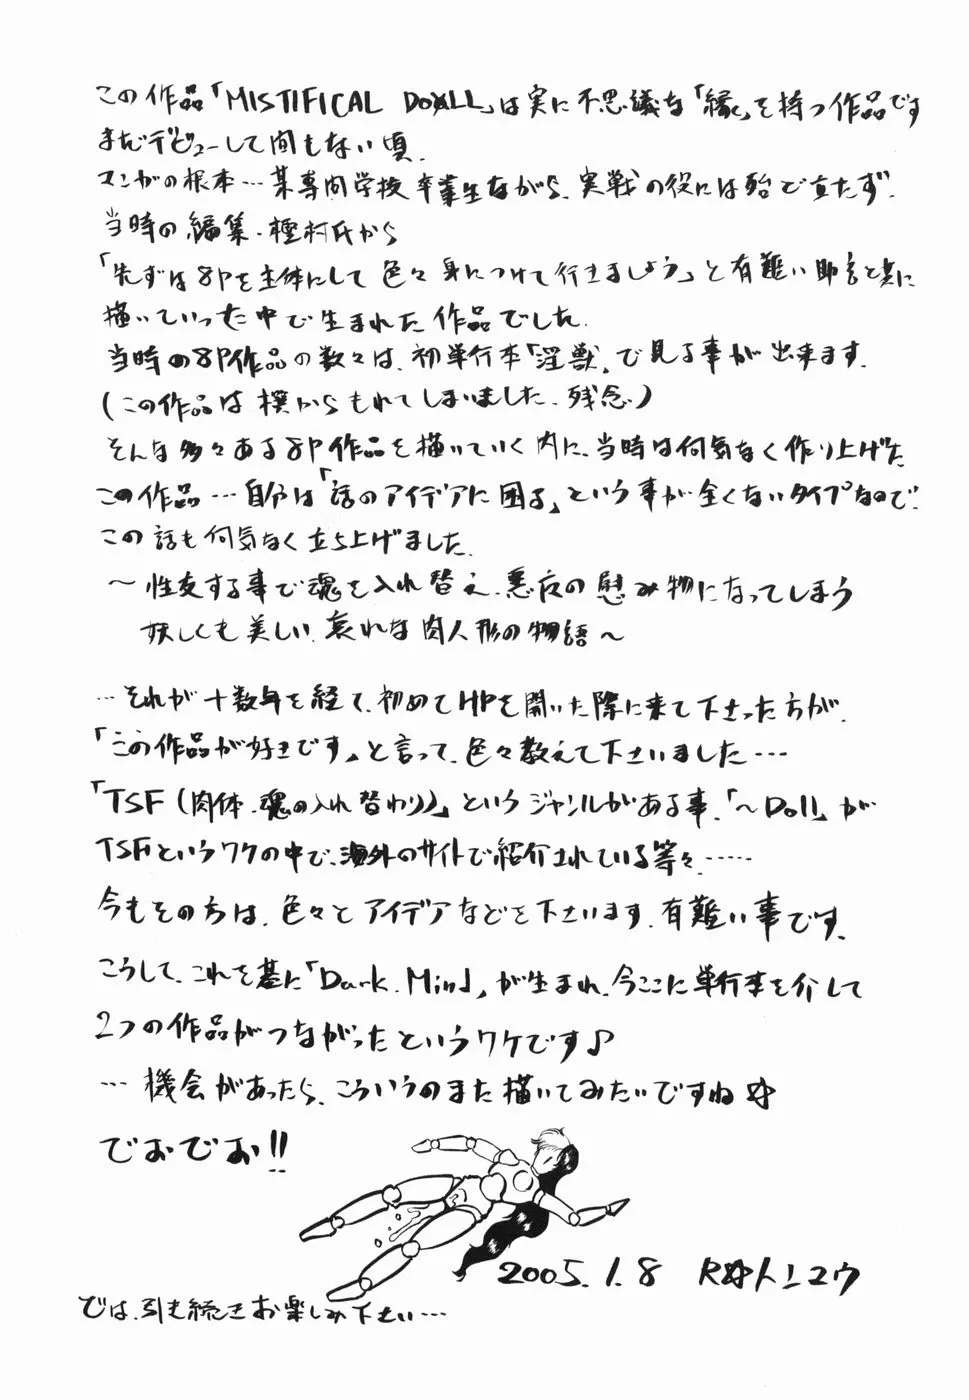 この作品「MISTIFICAL DOLL」は実に不思議な「縁」を持つ作品です
まだデビューして間もない頃.
マンガの根本…某専門学校卒業生ながら、実戦の役には殆ど立たず.
当時の編集・種村氏から
「先ずは8Pを主体にして色々身につけて行きましょう」と有難い助言と共に
描いていった中で生まれた作品でした.
当時の8P作品の数々は、初単行本「淫獣」で見る事が出来ます.
(この作品は 撰からもれてしまいました、残念)
そんな多々ある8P作品を描いていく内に、当時は何気なく作り上げた
この作品…自分は「話のアイデアに困る」という事が全くないタイプなので、
この話も何気なく立ち上げました.
〜性交する事で魂を入れ替え、悪友の慰み物になってしまう
妖しくも美しい、哀れな肉人形の物語〜
…それが十数年を経て、初めてHPを開いた際に来て下さった方が、
「この作品が好きです」と言って、色々教えて下さいました…
「TSF(肉体・魂の入れ替わり)」というジャンルがある事、「〜Doll」が
TSFというワクの中で、海外のサイトで紹介されている等々……
今もその方は、色々とアイデアなどを下さいます、有難い事です.
こうして、これを基に「Dark Mind」が生まれ、今ここに単行本を介して
2つの作品がつながったというワケです♪
…機会があったら、こういうのまた描いてみたいですね☆
でおでお!!
2005.1.8
では、引き続きお楽しみ下さい…